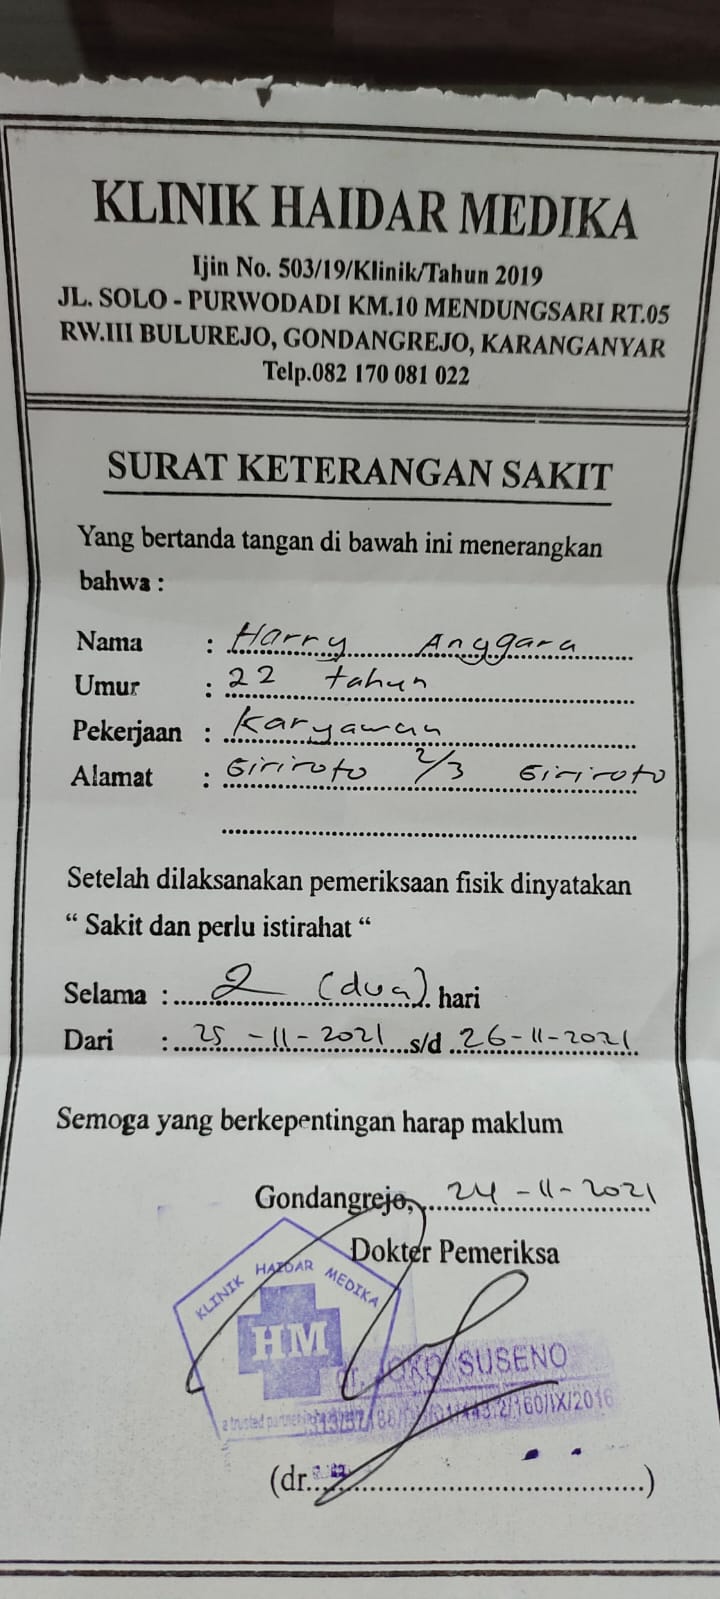 KLINIK HAIDAR MEDIKA
Ijin No. 503/19/Klinik/Tahun 2019
JL. SOLO - PURWODADI KM.10 MENDUNGSARI RT.05
RW.III BULUREJO, GONDANGREJO, KARANGANYAR
Telp.082 170 081 022
SURAT KETERANGAN SAKIT
Yang bertanda tangan di bawah ini menerangkan
bahwa :
Nama : Harry Anggara
Umur : 22 tahun
Pekerjaan : Karyawan
Alamat : Giriroto 2/3 Giriroto
Setelah dilaksanakan pemeriksaan fisik dinyatakan
“ Sakit dan perlu istirahat “
Selama : 2 (dua) hari
Dari : 25 -11- 2021 s/d 26-11-2021
Semoga yang berkepentingan harap maklum
Gondangrejo, 24 -11- 2021
Dokter Pemeriksa
KLINIK HAIDAR MEDIKA
HM
a trusted partner
dr. JOKO SUSENO
/160/IX/2016
(dr. )